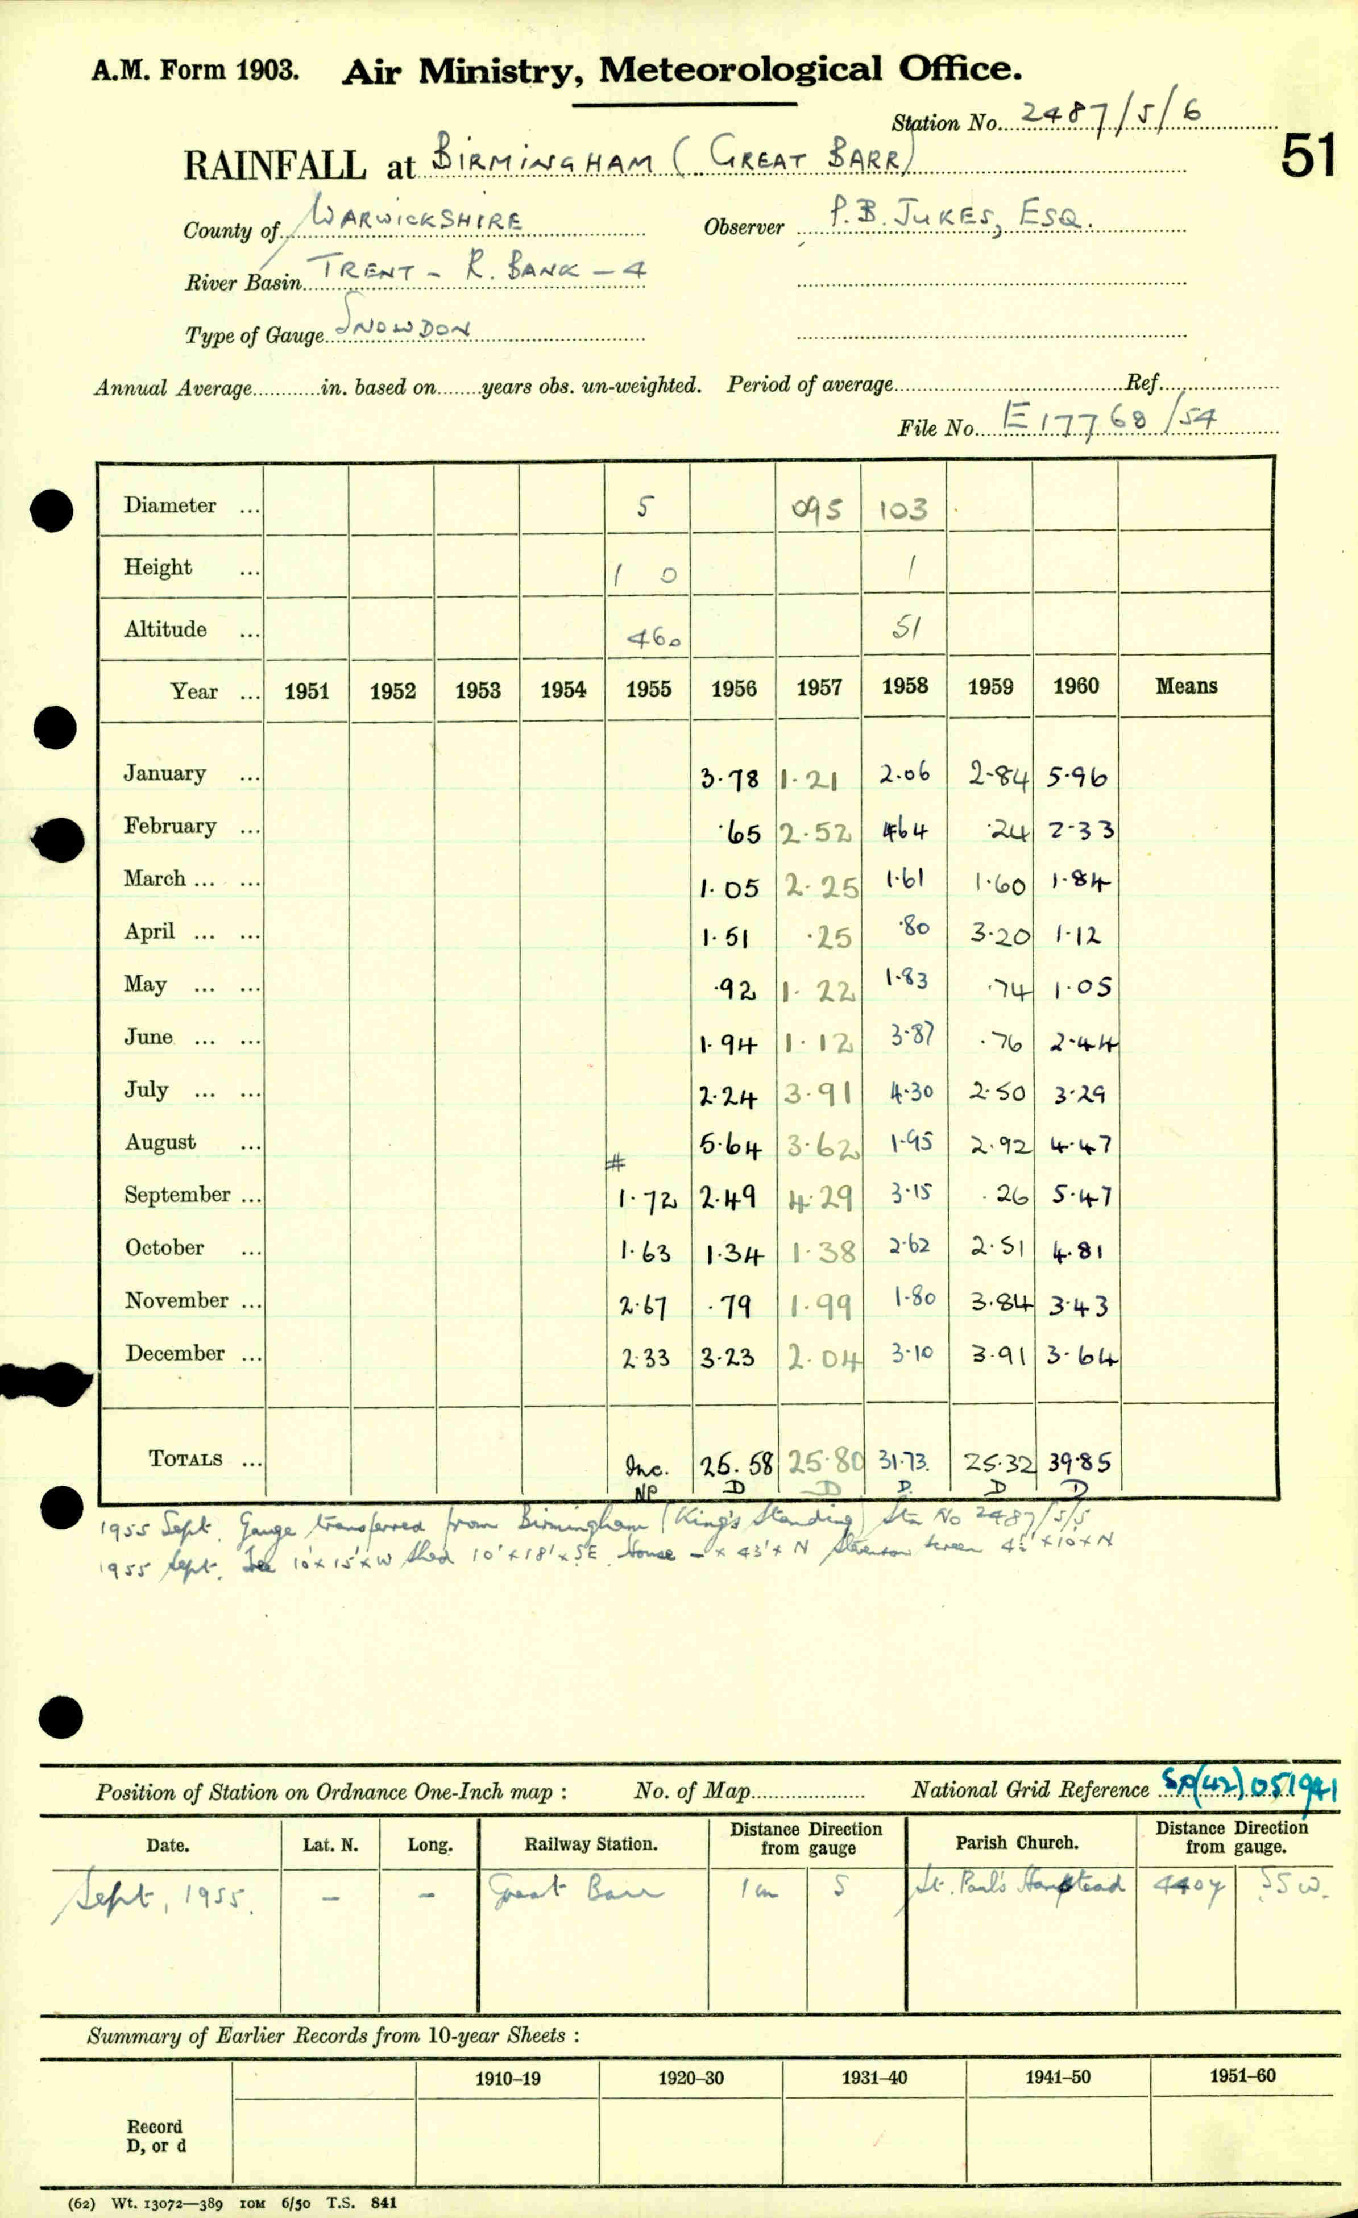 A.M. Form 1903. Air Ministry, Meteorological Office.
Station No. 2487/5/6
51
RAINFALL at BIRMINGHAM (GREAT BARR)
County of WARWICKSHIRE Observer P.B. JUKES, ESQ.
River Basin TRENT - R. BANK - 4
Type of Gauge SNOWDON
Annual Average in. based on years obs. un-weighted. Period of average Ref.
File No. E17768/54
Diameter ... 5 095 103
Height ... 1 0 1
Altitude ... 460 51
Year ... 1951 1952 1953 1954 1955 1956 1957 1958 1959 1960 Means
January ... 3.78 1.21 2.06 2.84 5.96
February ... .65 2.52 4.64 .24 2.33
March ... ... 1.05 2.25 1.61 1.60 1.84
April ... ... 1.51 .25 .80 3.20 1.12
May ... ... .92 1.22 1.83 .74 1.05
June ... ... 1.94 1.12 3.87 .76 2.44
July ... ... 2.24 3.91 4.30 2.50 3.29
August ... 5.64 3.62 1.95 2.92 4.47
#
September ... 1.72 2.49 4.29 3.15 .26 5.47
October ... 1.63 1.34 1.38 2.62 2.51 4.81
November ... 2.67 .79 1.99 1.80 3.84 3.43
December ... 2.33 3.23 2.04 3.10 3.91 3.64
TOTALS ... Inc. 25.58 25.80 31.73. 25.32 39.85
NP D D D. D D
1955 Sept. Gauge transferred from Birmingham (King's Standing) Stn No 2487/5/5
1955 Sept. 10'x15'xW Shed 10'x18'xSE. House - x 43'x N Stevenson Screen 4½'x10'xN
Position of Station on Ordnance One-Inch map : No. of Map National Grid Reference SP(42)051941
Date. Lat. N. Long. Railway Station. Distance Direction from gauge Parish Church. Distance Direction from gauge.
Sept, 1955. - - Great Barr 1m S St. Paul's Hamstead 440y SSW.
Summary of Earlier Records from 10-year Sheets :
1910–19 1920–30 1931–40 1941–50 1951–60
Record
D, or d
(62) Wt. 13072—389 10M 6/50 T.S. 841